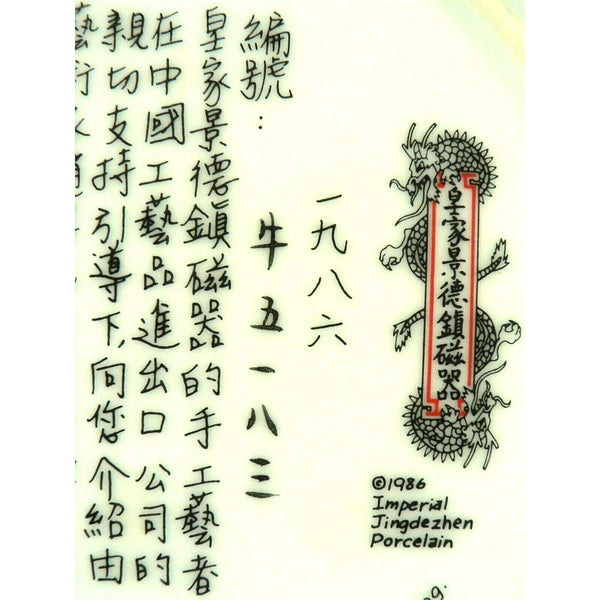 皇家景德鎮磁器
©1986
Imperial
Jingdezhen
Porcelain
一九八六
編號：
牛五一八三
皇家景德鎮磁器的手工藝者
在中國工藝品進出口公司的
親切支持引導下,向您介紹由